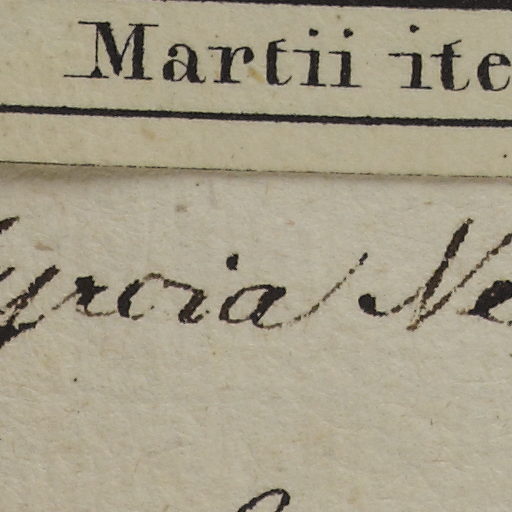 Martii ite
yrcia Ne